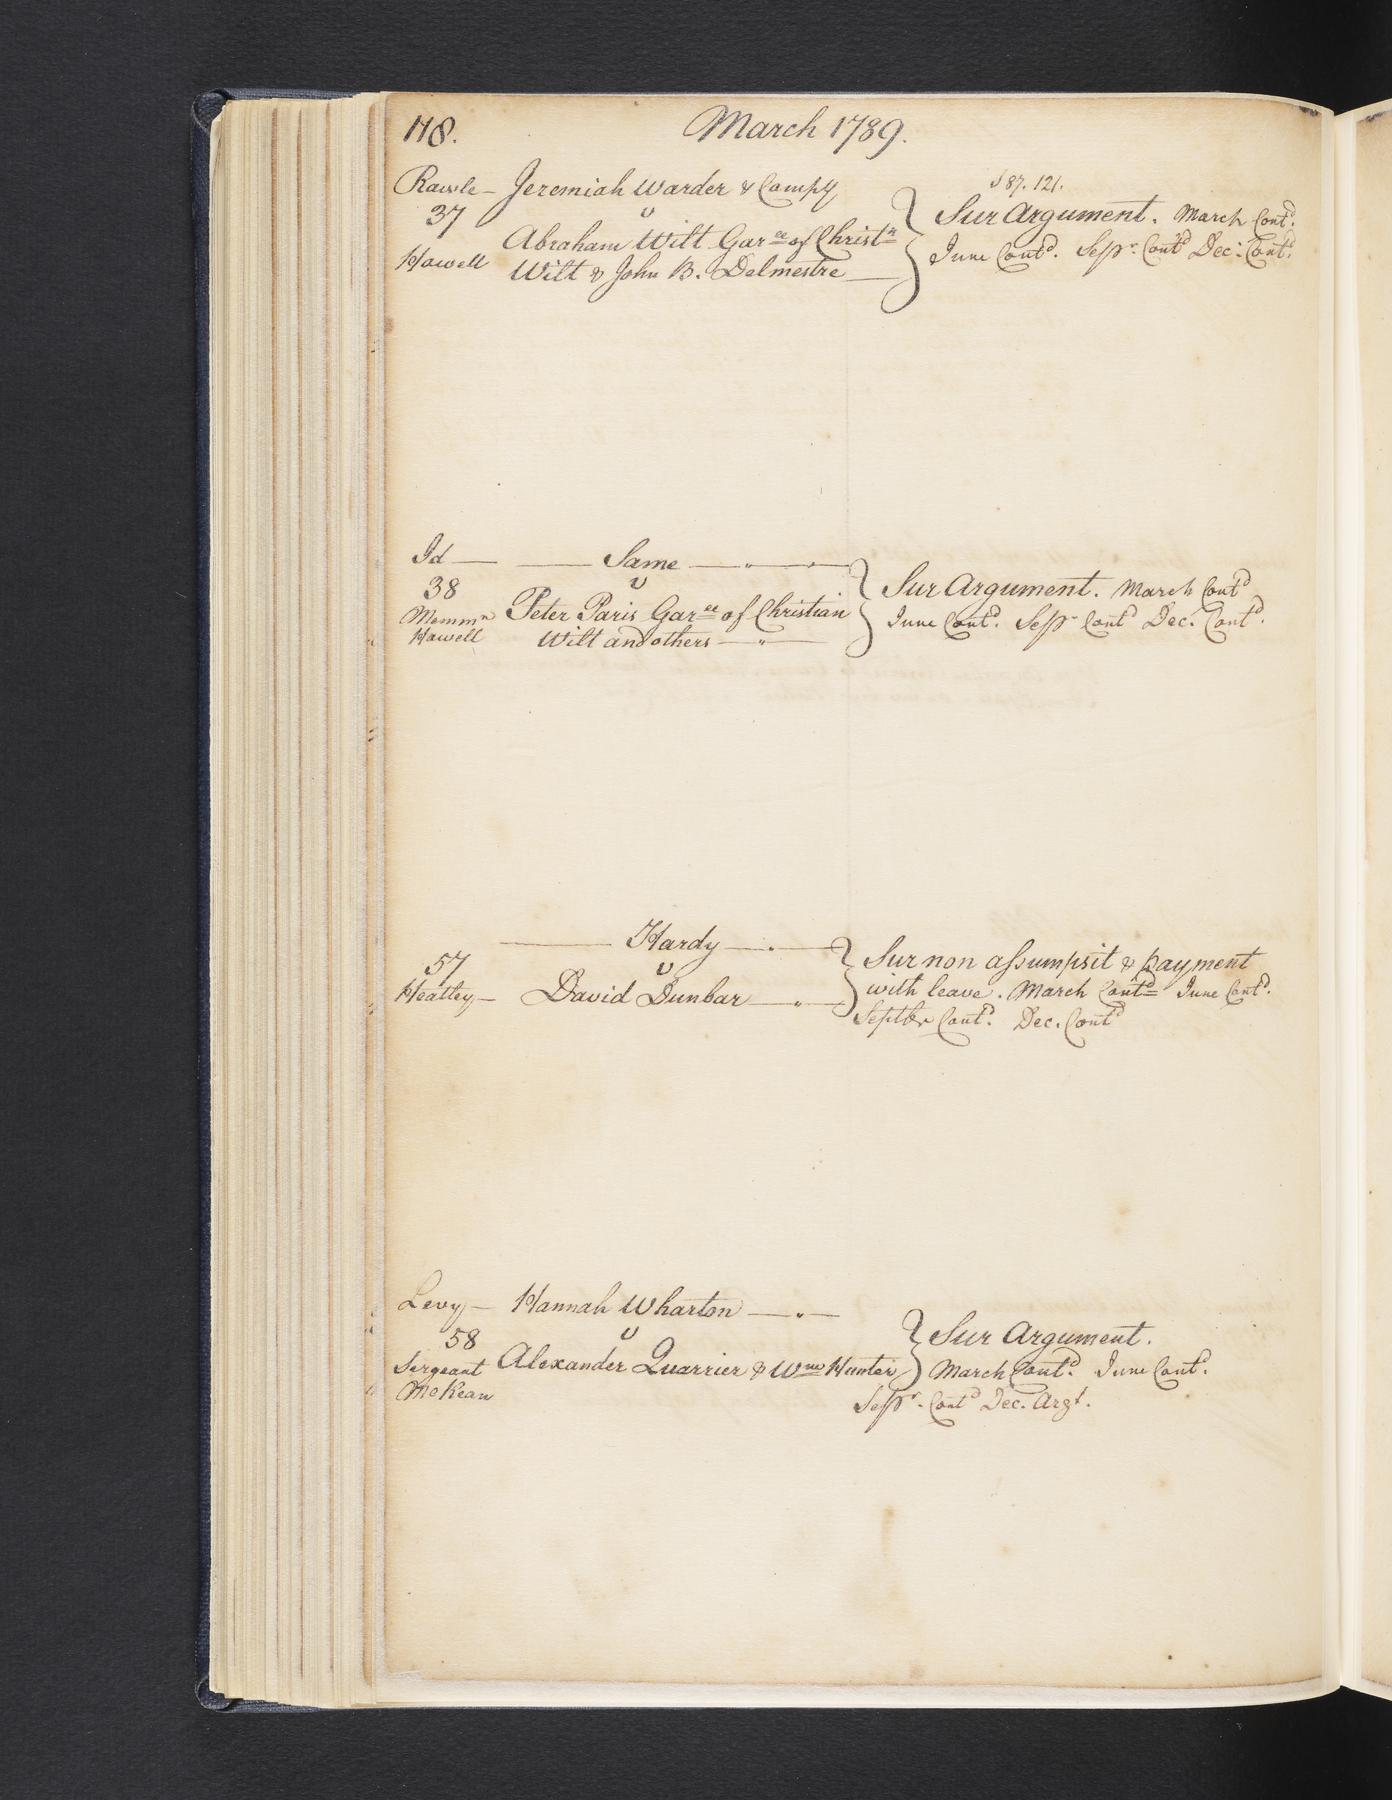 118. March 1789.
Rawle — Jeremiah Warder & Compy S 87. 121.
37 v Sur Argument. March Contd.
Abraham Wilt Garee of Christn
Howell Wilt & John B. Delmestre — June Contd. Sepr. Contd Dec: Contd.
Id — — Same —
38 v Sur Argument. March Contd
Memmn Peter Paris Garee of Christian June Contd. Sepr Contd Dec. Contd.
Howell Wilt and others —
— Hardy —
57 v Sur non assumpsit & payment
Heatley — David Dunbar — with leave. March Contd June Contd.
Septbr Contd. Dec. Contd
Levy — Hannah Wharton —
58 v Sur Argument.
Sergeant Alexander Quarrier & Wm Hunter March Contd. June Contd.
McKean Sepr. Contd Dec. Argt.